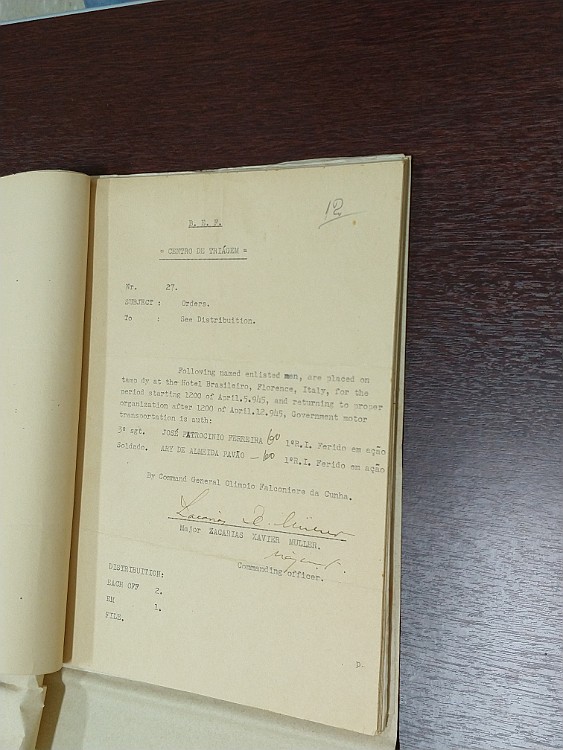 12
B. E. F.
= CENTRO DE TRIÁGEM =
Nr. 27.
SUBJECT : Orders.
To : See Distribuition.
Following named enlisted men, are placed on
temo dy at the Hotel Brasileiro, Florence, Italy, for the
period starting 1200 of April.5.945, and returning to proper
organization after 1200 of April.12.945, Government motor
transportation is auth:
3º sgt. JOSÉ PATROCINIO FERREIRA 60 1ºR.I. Ferido em ação
Soldado. ARY DE ALMEIDA PAVÃO — 60 1ºR.I. Ferido em ação
By Command General Olimpio Falconiere da Cunha.
Zacarias X. Müller
Major ZACARIAS XAVIER MULLER.
Commanding officer.
DISTRIBUITION:
EACH OFF 2.
EM 1.
FILE.
p.